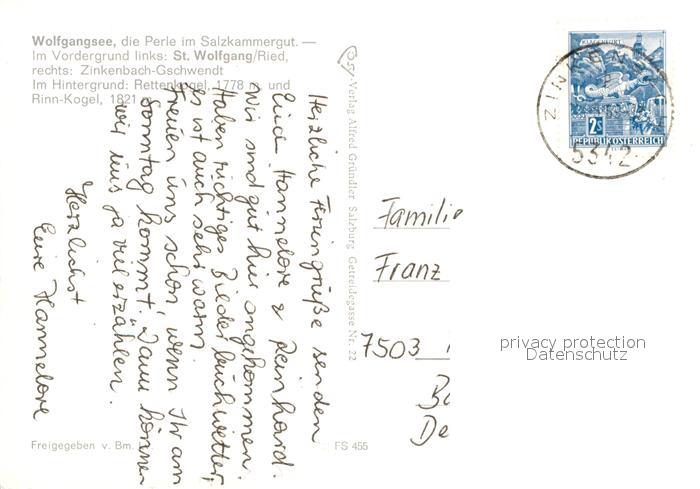 Wolfgangsee, die Perle im Salzkammergut. —
Im Vordergrund links: St. Wolfgang/Ried,
rechts: Zinkenbach-Gschwendt
Im Hintergrund: Rettenkogel, 1778 m, und
Rinn-Kogel, 1821
Herzliche Feriengrüße senden
Euch Hannelore & Reinhard.
Wir sind gut hier angekommen.
Haben richtiges Bilderbuchwetter,
es ist auch sehr warm.
Freuen uns schon, wenn Ihr am
Sonntag kommt. Dann können
wir uns ja viel erzählen.
Herzlichst
Eure Hannelore
Freigegeben v. Bm.
FS 455
Verlag Alfred Gründler Salzburg Getreidegasse Nr. 22
2S
REPUBLIK ÖSTERREICH
5342
Familie
Franz
7503
De
privacy protection
Datenschutz